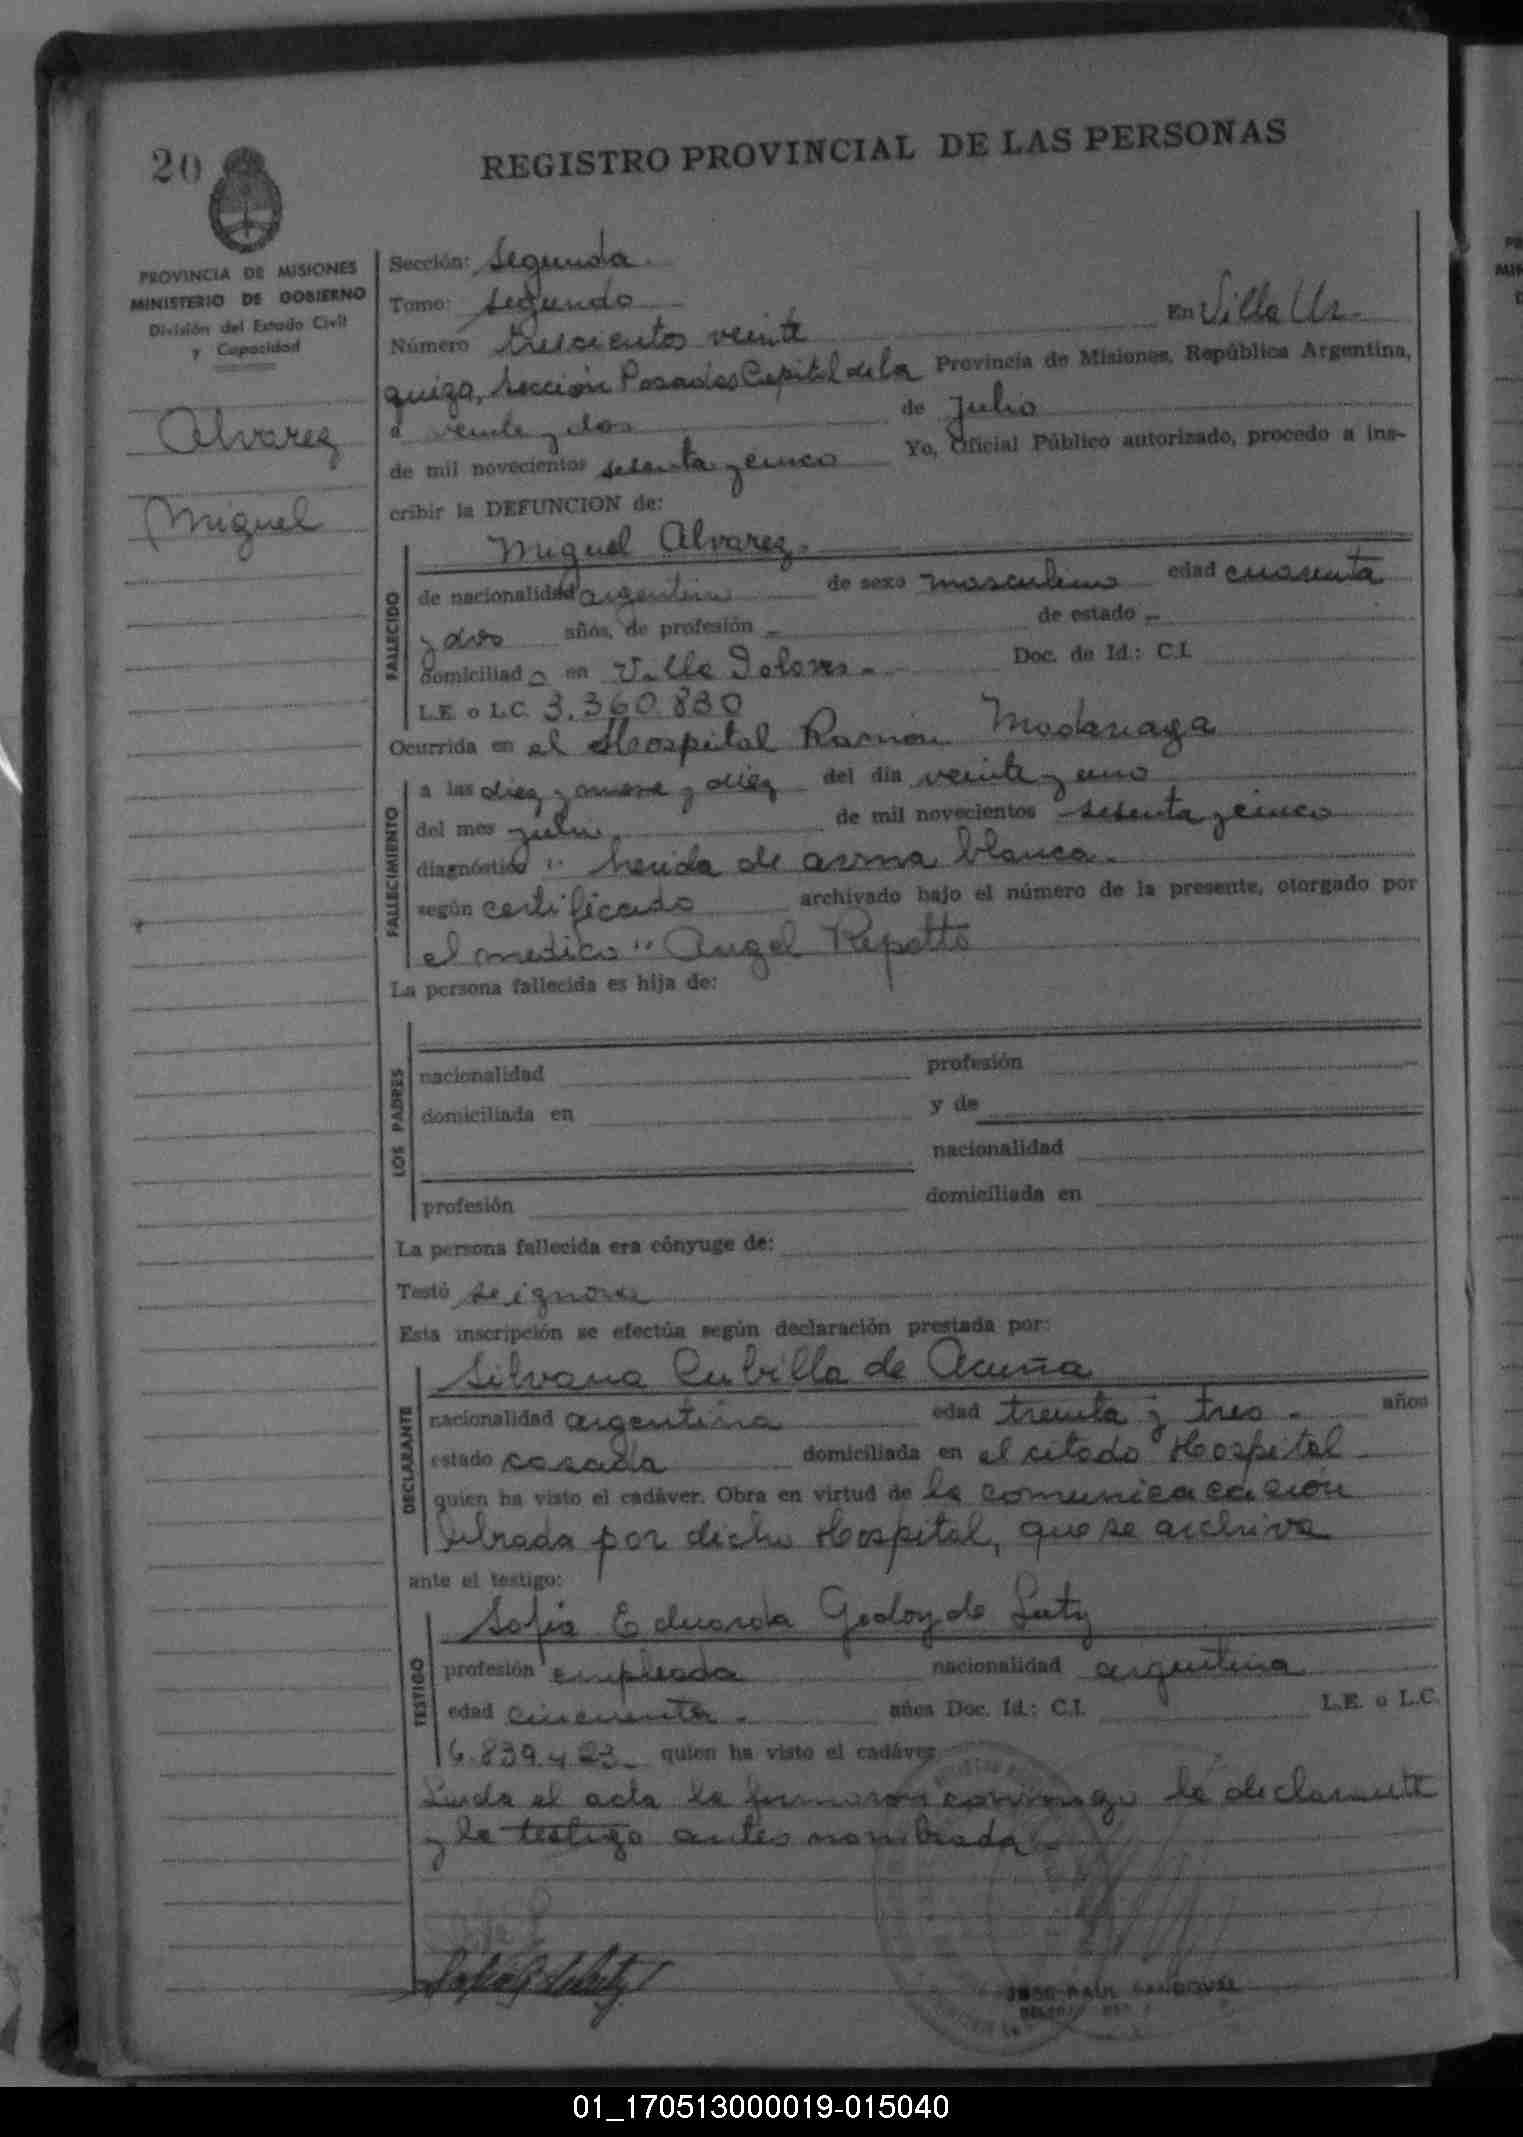 20
REGISTRO PROVINCIAL DE LAS PERSONAS
PROVINCIA DE MISIONES
MINISTERIO DE GOBIERNO
División del Estado Civil
y Capacidad
Alvarez
Miguel
Sección: Segunda.
Tomo: segundo
Número trescientos veinte En Villa Ur-
quiza, Sección Posadas Capital de la Provincia de Misiones, República Argentina,
a veinte y dos de Julio
de mil novecientos setenta y cinco Yo, Oficial Público autorizado, procedo a ins-
cribir la DEFUNCION de:
Miguel Alvarez.
FALLECIDO
de nacionalidad argentino de sexo masculino edad cuarenta
y dos años, de profesión - de estado -
domiciliado en Villa Dolores - Doc. de Id.: C.I.
L.E. o L.C. 3.360.830
Ocurrida en el Hospital Ramón Madariaga
FALLECIMIENTO
a las diez y nueve y diez del día veinte y uno
del mes julio de mil novecientos setenta y cinco
diagnóstico " herida de arma blanca.
según certificado archivado bajo el número de la presente, otorgado por
el medico " Angel Repetto
La persona fallecida es hija de:
LOS PADRES
nacionalidad profesión
domiciliada en y de
nacionalidad
profesión domiciliada en
La persona fallecida era cónyuge de:
Testó se ignora
Esta inscripción se efectúa según declaración prestada por:
Silvana Cubilla de Acuña
DECLARANTE
nacionalidad argentina edad treinta y tres - años
estado casada domiciliada en el citado Hospital
quien ha visto el cadáver. Obra en virtud de la comunicacación
librada por dicho Hospital, que se archiva
ante el testigo:
Sofia Eduarda Godoy de
TESTIGO
profesión empleada nacionalidad argentina
edad cincuenta - años Doc. Id.: C.I. L.E. o L.C.
6.839.423 - quien ha visto el cadáver
Leida el acta la firmaron conmigo la declarante
y la testigo antes nombrada.
JOSE RAUL SANDOVAL
01_170513000019-015040